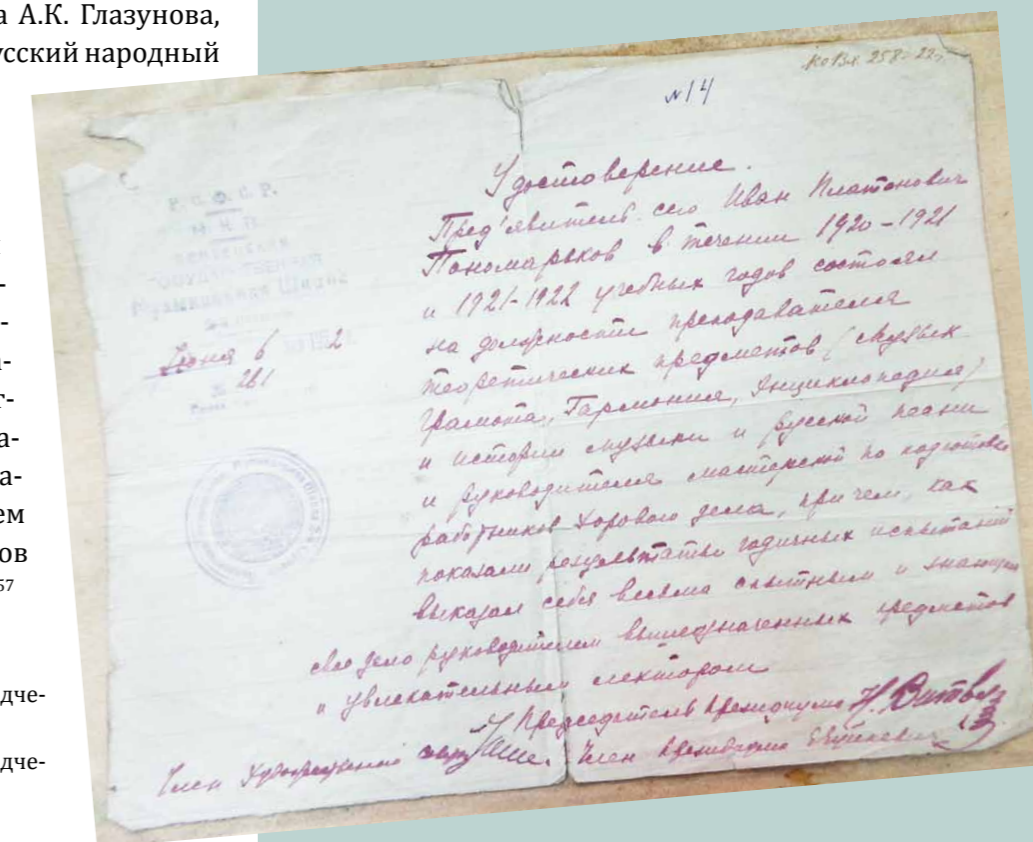 а А.К. Глазунова,
усский народный
ем
ов
57
дче-
дче-
№14
Р.С.Ф.С.Р.
Государственная
Музыкальная Школа
Июня 6 2
№ 261
Удостоверение.
Пред'явитель сего Иван Платонович
Пономарьков в течении 1920-1921
и 1921-1922 учебных годов состоял
на должности преподавателя
теоретических предметов (Музык.
грамота, Гармония, Энциклопедия)
и истории музыки и русской песни
и руководителя мастерской по подготовке
работников хорового дела, при чем, как
показали результаты годичных испытаний
выказал себя весьма опытным и знающим
свое дело руководителем вышеозначенных предметов
и увлекательным лектором
Председатель президиума Н.
Член Художественной Член президиума